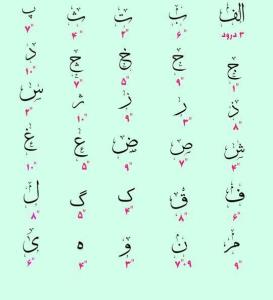 الف ب ت ث پ
۳ درود ۶" ۲" ۴" ۷"
ج چ ح خ د
۱" ۹" ۵" ۷" ۱۰"
ذ ر ز ژ س
۸" ۳" ۹" ۱۰" ۲"
ش ص ض ع غ
۴" ۷" ۹" ۵" ۱۰"
ف ق ک گ ل
۶" ۸" ۴" ۵" ۸"
م ن و ه ی
۹" ۹۰۷ ۳" ۴" ۶"